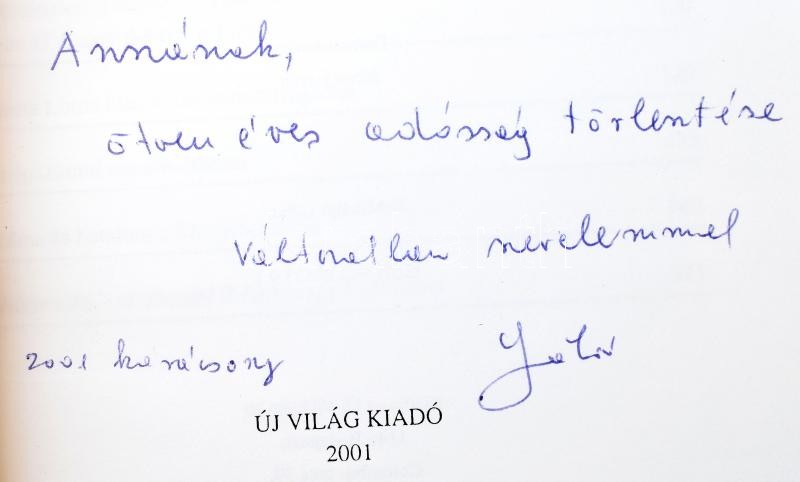 Annának,
ötven éves adósság törlentése
Változatlan szerelemmel
2001 karácsony
ÚJ VILÁG KIADÓ
2001